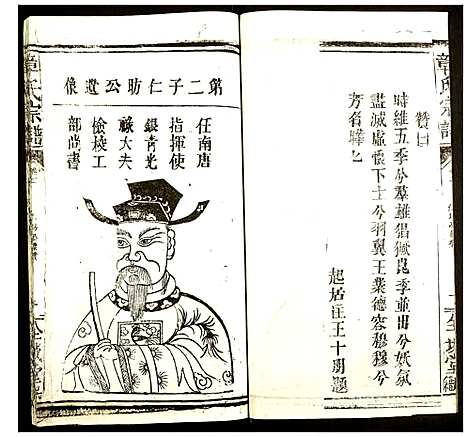 章氏宗譜
贊曰
時維五季兮羣雄猖獗崑季並出兮妖氛
盡滅虛懷下士兮羽翼王業德容穆穆兮
芳名曄曄
起居注王十朋題
第二子仁昉公遺像
任南唐
指揮使
銀青光
祿大夫
檢校工
部尚書
章氏宗譜